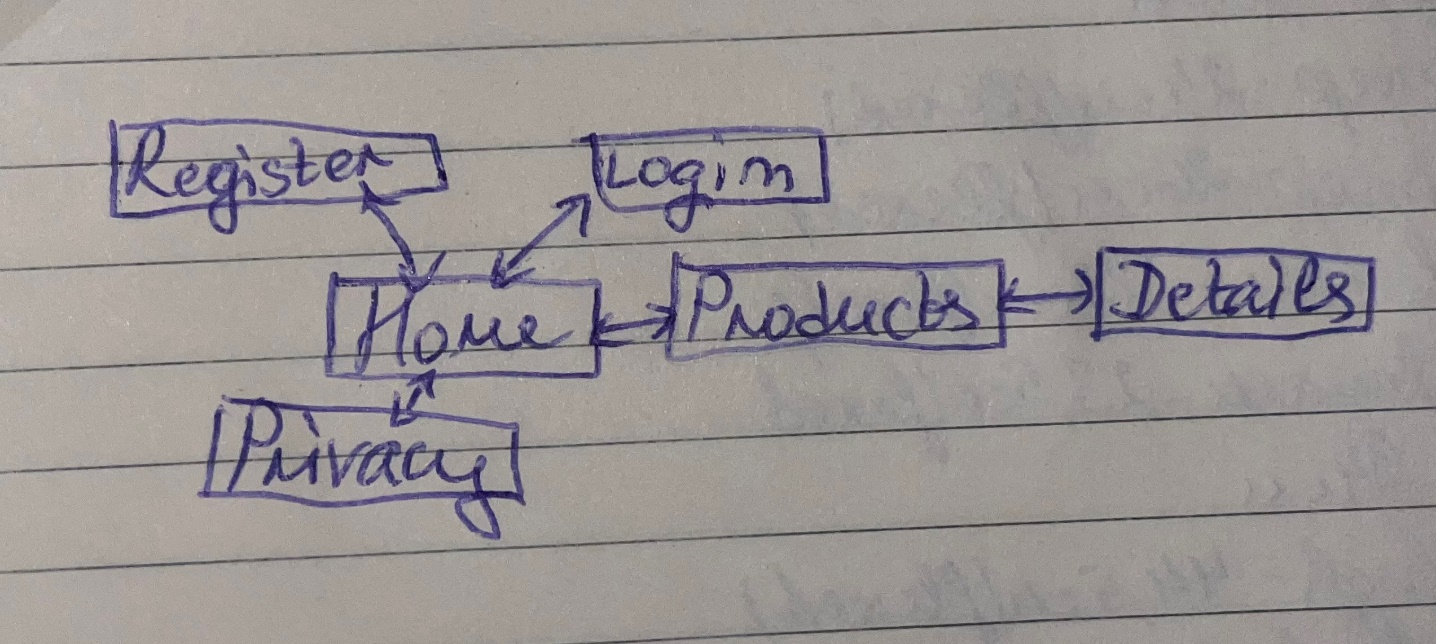 Register
Login
Home
Products
Details
Privacy